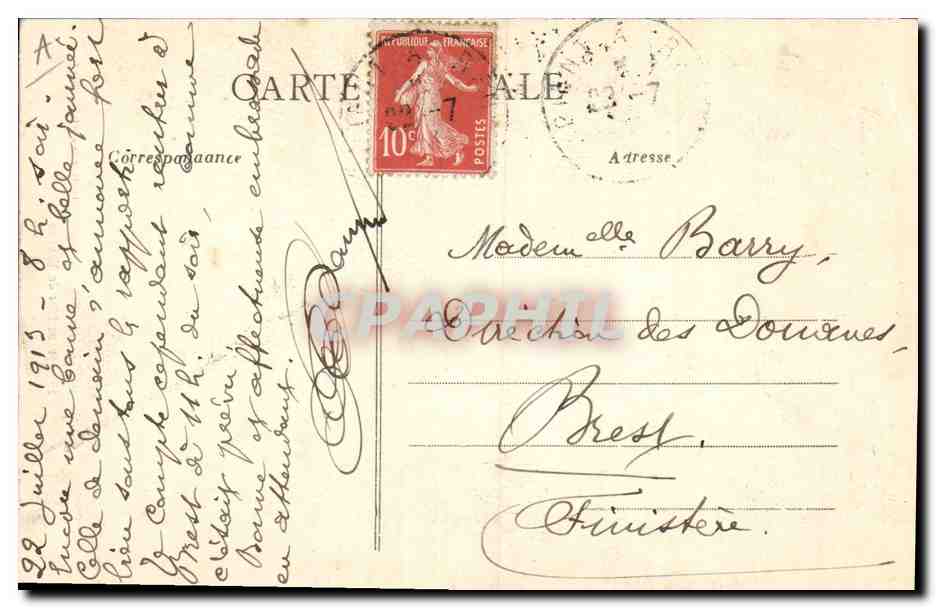 CARTE POSTALE
REPUBLIQUE FRANÇAISE
10c
POSTES
Correspondance
Adresse
22 Juillet 1913 - 8 h. soir
Encore une bonne et belle journée.
Celle de demain s'annonce fort
bien sous tous les rapports.
Je compte cependant rentrer à
Brest à 11 h. du soir, comme
c'était prévu.
Bonne et affectueuse embrassade
en attendant.
Mademelle Barry,
Direction des Douanes,
Brest.
Finistère.
CPAPHIL